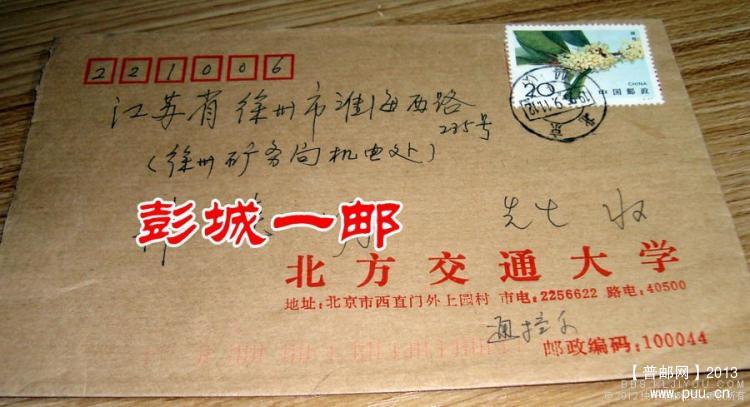 221006
CHINA
20
中国邮政
江苏省徐州市淮海西路
235号
(徐州矿务局机电处)
彭城一邮
先生 收
北方交通大学
地址:北京市西直门外上园村 市电:2256622 路电:40500
通控系
邮政编码:100044
【普邮网】2013
www.puu.cn